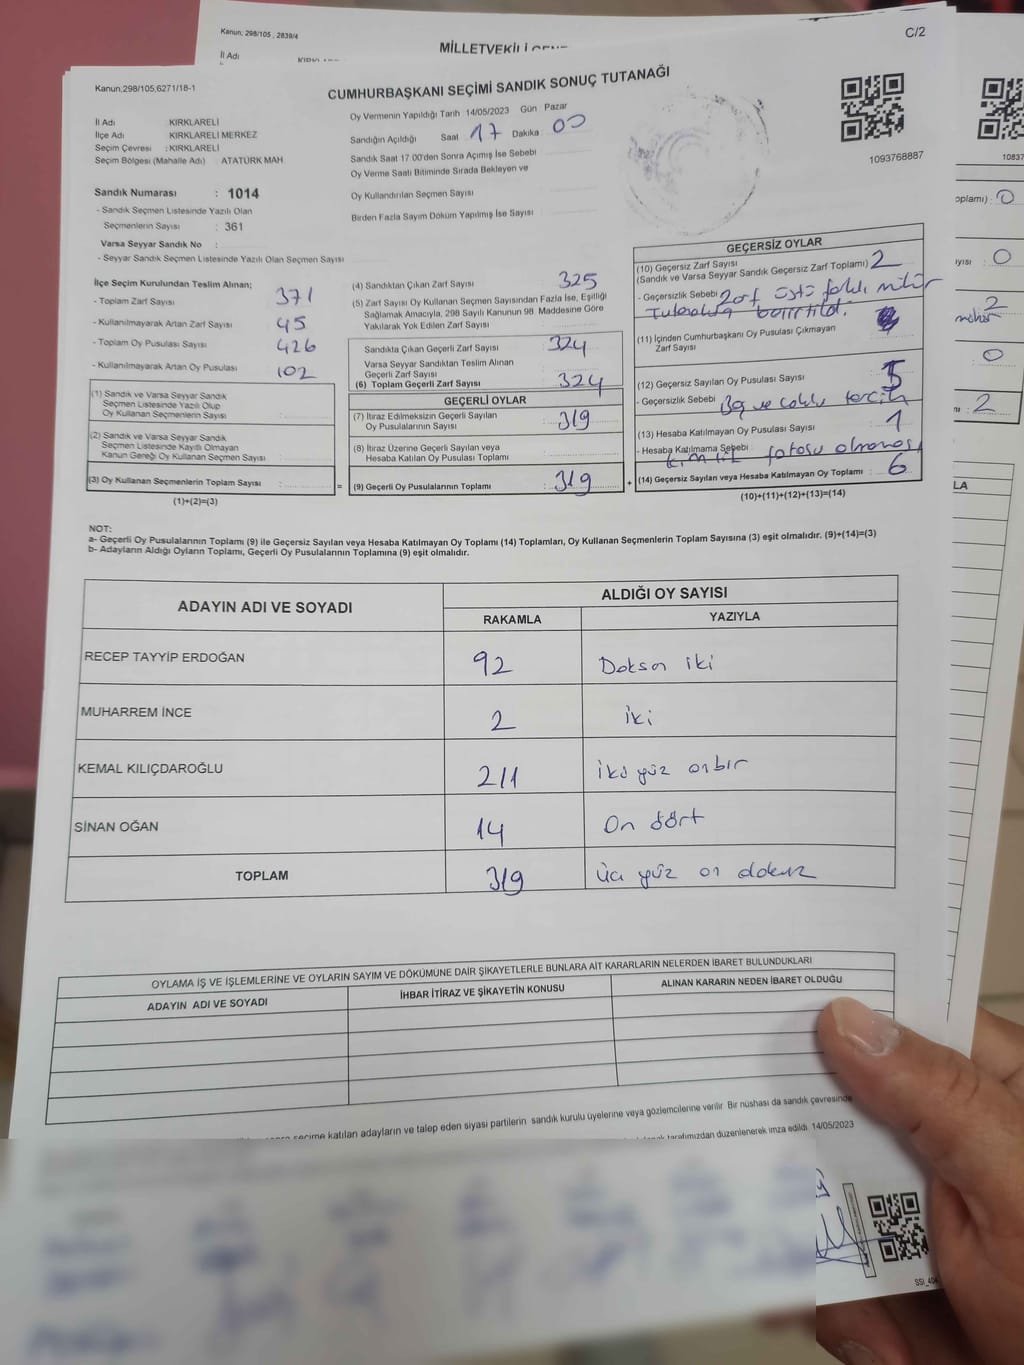 Kanun; 298/105 , 2839/4
MİLLETVEKİLİ
İl Adı
C/2
Kanun,298/105,6271/18-1
CUMHURBAŞKANI SEÇİMİ SANDIK SONUÇ TUTANAĞI
İl Adı KIRKLARELİ
İlçe Adı KIRKLARELİ MERKEZ
Seçim Çevresi : KIRKLARELİ
Seçim Bölgesi (Mahalle Adı) : ATATÜRK MAH
Sandık Numarası : 1014
- Sandık Seçmen Listesinde Yazılı Olan
Seçmenlerin Sayısı : 361
Varsa Seyyar Sandık No :
- Seyyar Sandık Seçmen Listesinde Yazılı Olan Seçmen Sayısı
Oy Vermenin Yapıldığı Tarih 14/05/2023 Gün : Pazar
Sandığın Açıldığı Saat 17 Dakika : 00
Sandık Saat 17.00'den Sonra Açımış İse Sebebi
Oy Verme Saati Bitiminde Sırada Bekleyen ve
Oy Kullandırılan Seçmen Sayısı
Birden Fazla Sayım Döküm Yapılmış İse Sayısı
1093768887
İlçe Seçim Kurulundan Teslim Alınan;
- Toplam Zarf Sayısı 371
- Kullanılmayarak Artan Zarf Sayısı 45
- Toplam Oy Pusulası Sayısı 426
- Kullanılmayarak Artan Oy Pusulası 102
(1) Sandık ve Varsa Seyyar Sandık
Seçmen Listesinde Yazılı Olup
Oy Kullanan Seçmenlerin Sayısı
(2) Sandık ve Varsa Seyyar Sandık
Seçmen Listesinde Kayıtlı Olmayan
Kanun Gereği Oy Kullanan Seçmen Sayısı
(3) Oy Kullanan Seçmenlerin Toplam Sayısı
(1)+(2)=(3)
(4) Sandıktan Çıkan Zarf Sayısı 325
(5) Zarf Sayısı Oy Kullanan Seçmen Sayısından Fazla İse, Eşitliği
Sağlamak Amacıyla, 298 Sayılı Kanunun 98. Maddesine Göre
Yakılarak Yok Edilen Zarf Sayısı
Sandıkta Çıkan Geçerli Zarf Sayısı 324
Varsa Seyyar Sandıktan Teslim Alınan
Geçerli Zarf Sayısı
(6) Toplam Geçerli Zarf Sayısı 324
GEÇERLİ OYLAR
(7) İtiraz Edilmeksizin Geçerli Sayılan
Oy Pusulalarının Sayısı 319
(8) İtiraz Üzerine Geçerli Sayılan veya
Hesaba Katılan Oy Pusulası Toplamı
(9) Geçerli Oy Pusulalarının Toplamı 319
GEÇERSİZ OYLAR
(10) Geçersiz Zarf Sayısı
(Sandık ve Varsa Seyyar Sandık Geçersiz Zarf Toplamı) 2
- Geçersizlik Sebebi Zarf üstü fazla mühür
Tutanakta belirtildi.
(11) İçinden Cumhurbaşkanı Oy Pusulası Çıkmayan
Zarf Sayısı
(12) Geçersiz Sayılan Oy Pusulası Sayısı 5
- Geçersizlik Sebebi Boş ve çoklu tercih
(13) Hesaba Katılmayan Oy Pusulası Sayısı 1
- Hesaba Katılmama Sebebi kimlik fotosu olmaması
(14) Geçersiz Sayılan veya Hesaba Katılmayan Oy Toplamı 6
(10)+(11)+(12)+(13)=(14)
NOT:
a- Geçerli Oy Pusulalarının Toplamı (9) ile Geçersiz Sayılan veya Hesaba Katılmayan Oy Toplamı (14) Toplamları, Oy Kullanan Seçmenlerin Toplam Sayısına (3) eşit olmalıdır. (9)+(14)=(3)
b- Adayların Aldığı Oyların Toplamı, Geçerli Oy Pusulalarının Toplamına (9) eşit olmalıdır.
ADAYIN ADI VE SOYADI ALDIĞI OY SAYISI
RAKAMLA YAZIYLA
RECEP TAYYİP ERDOĞAN 92 Doksan iki
MUHARREM İNCE 2 iki
KEMAL KILIÇDAROĞLU 211 iki yüz onbir
SİNAN OĞAN 14 On dört
TOPLAM 319 Üç yüz on dokuz
OYLAMA İŞ VE İŞLEMLERİNE VE OYLARIN SAYIM VE DÖKÜMÜNE DAİR ŞİKAYETLERLE BUNLARA AİT KARARLARIN NELERDEN İBARET BULUNDUKLARI
ADAYIN ADI VE SOYADI İHBAR İTİRAZ VE ŞİKAYETİN KONUSU ALINAN KARARIN NEDEN İBARET OLDUĞU
seçime katılan adayların ve talep eden siyasi partilerin sandık kurulu üyelerine veya gözlemcilerine verilir. Bir nüshası da sandık çevresinde
tarafımızdan düzenlenerek imza edildi. 14/05/2023